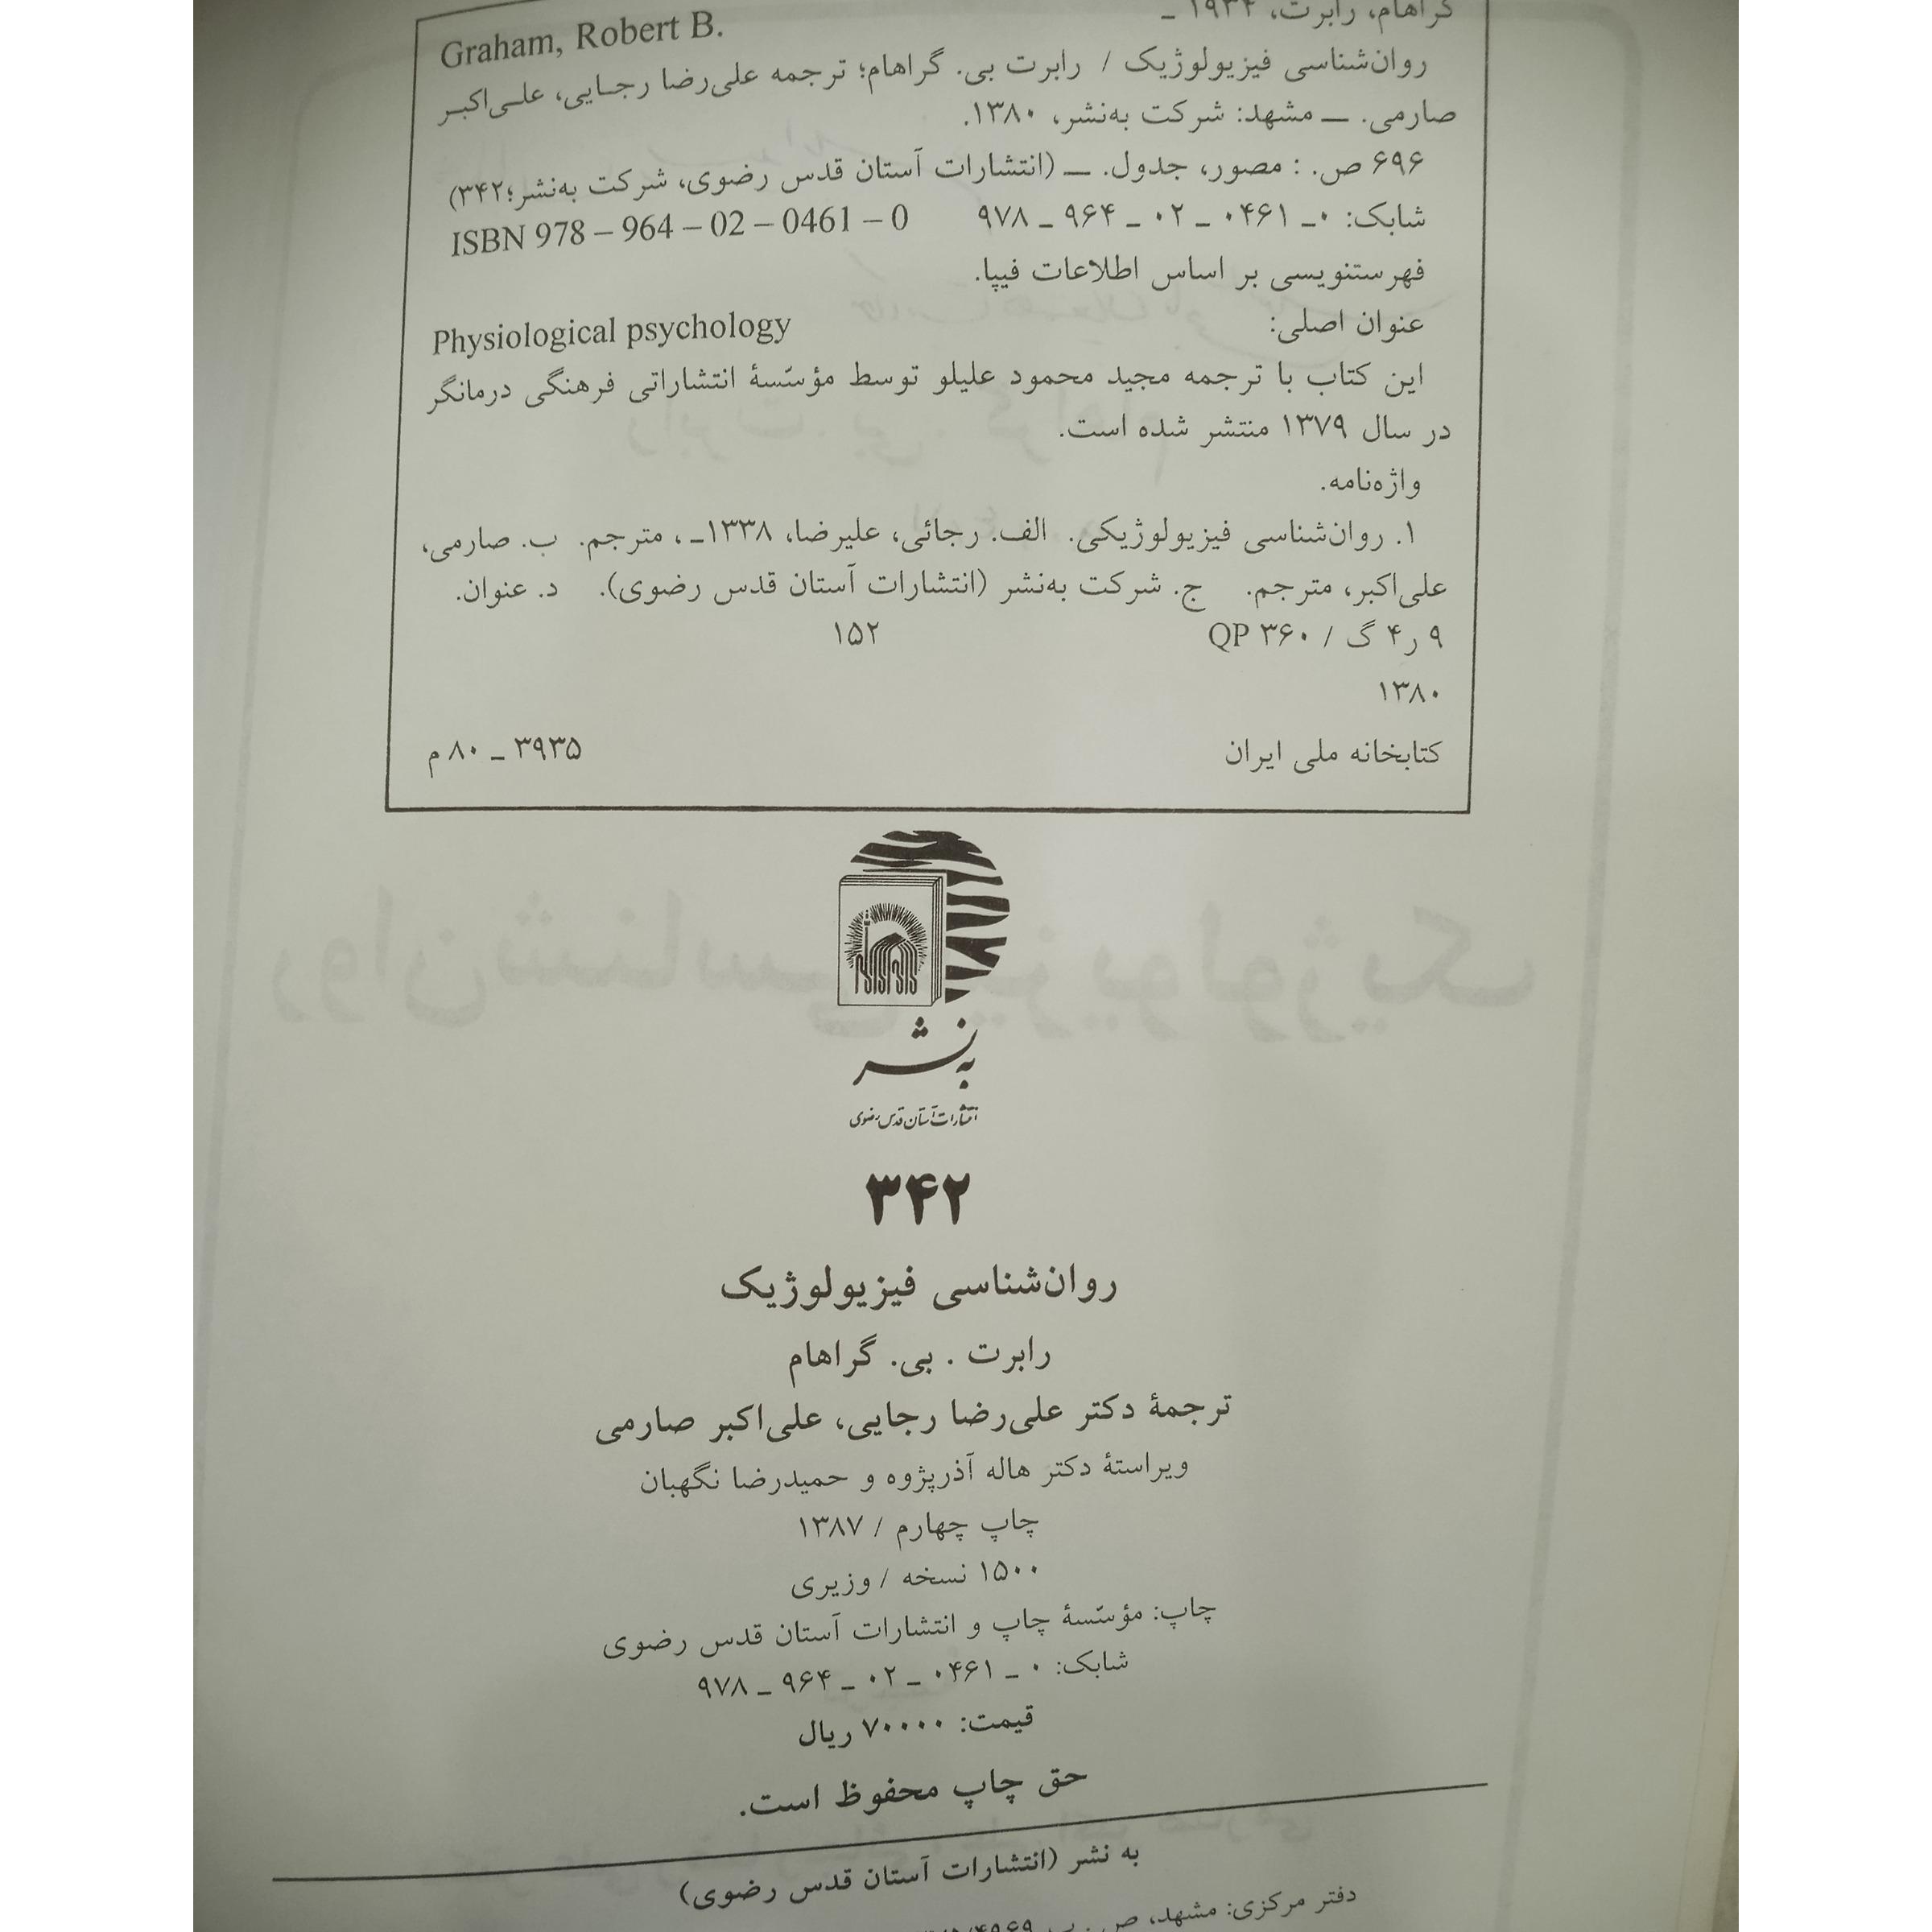 گراهام، رابرت، ۱۹۳۴ ـ
Graham, Robert B.
روان‌شناسی فیزیولوژیک / رابرت بی. گراهام؛ ترجمه علی‌رضا رجـایی، علـی‌اکبـر
صارمی. ـــ مشهد: شرکت به‌نشر، ۱۳۸۰.
۶۹۶ ص. : مصور، جدول. ـــ (انتشارات آستان قدس رضوی، شرکت به‌نشر؛۳۴۲)
شابک: ۰ـ ۰۴۶۱ ـ ۰۲ ـ ۹۶۴ ـ ۹۷۸ ISBN 978 – 964 – 02 – 0461 – 0
فهرستنویسی بر اساس اطلاعات فیپا.
عنوان اصلی: Physiological psychology
این کتاب با ترجمه مجید محمود علیلو توسط مؤسّسهٔ انتشاراتی فرهنگی درمانگر
در سال ۱۳۷۹ منتشر شده است.
واژه‌نامه.
۱. روان‌شناسی فیزیولوژیکی. الف. رجائی، علیرضا، ۱۳۳۸ـ ، مترجم. ب. صارمی،
علی‌اکبر، مترجم. ج. شرکت به‌نشر (انتشارات آستان قدس رضوی). د. عنوان.
۹ ر۴ گ / ۳۶۰ QP ۱۵۲
۱۳۸۰
کتابخانه ملی ایران ۳۹۳۵ ـ ۸۰ م
به‌نشر
انتشارات آستان قدس رضوی
۳۴۲
روان‌شناسی فیزیولوژیک
رابرت . بی. گراهام
ترجمهٔ دکتر علی‌رضا رجایی، علی‌اکبر صارمی
ویراستهٔ دکتر هاله آذرپژوه و حمیدرضا نگهبان
چاپ چهارم / ۱۳۸۷
۱۵۰۰ نسخه / وزیری
چاپ: مؤسّسهٔ چاپ و انتشارات آستان قدس رضوی
شابک: ۰ ـ ۰۴۶۱ ـ ۰۲ ـ ۹۶۴ ـ ۹۷۸
قیمت: ۷۰۰۰۰ ریال
حق چاپ محفوظ است.
به نشر (انتشارات آستان قدس رضوی)
دفتر مرکزی: مشهد، ص . پ